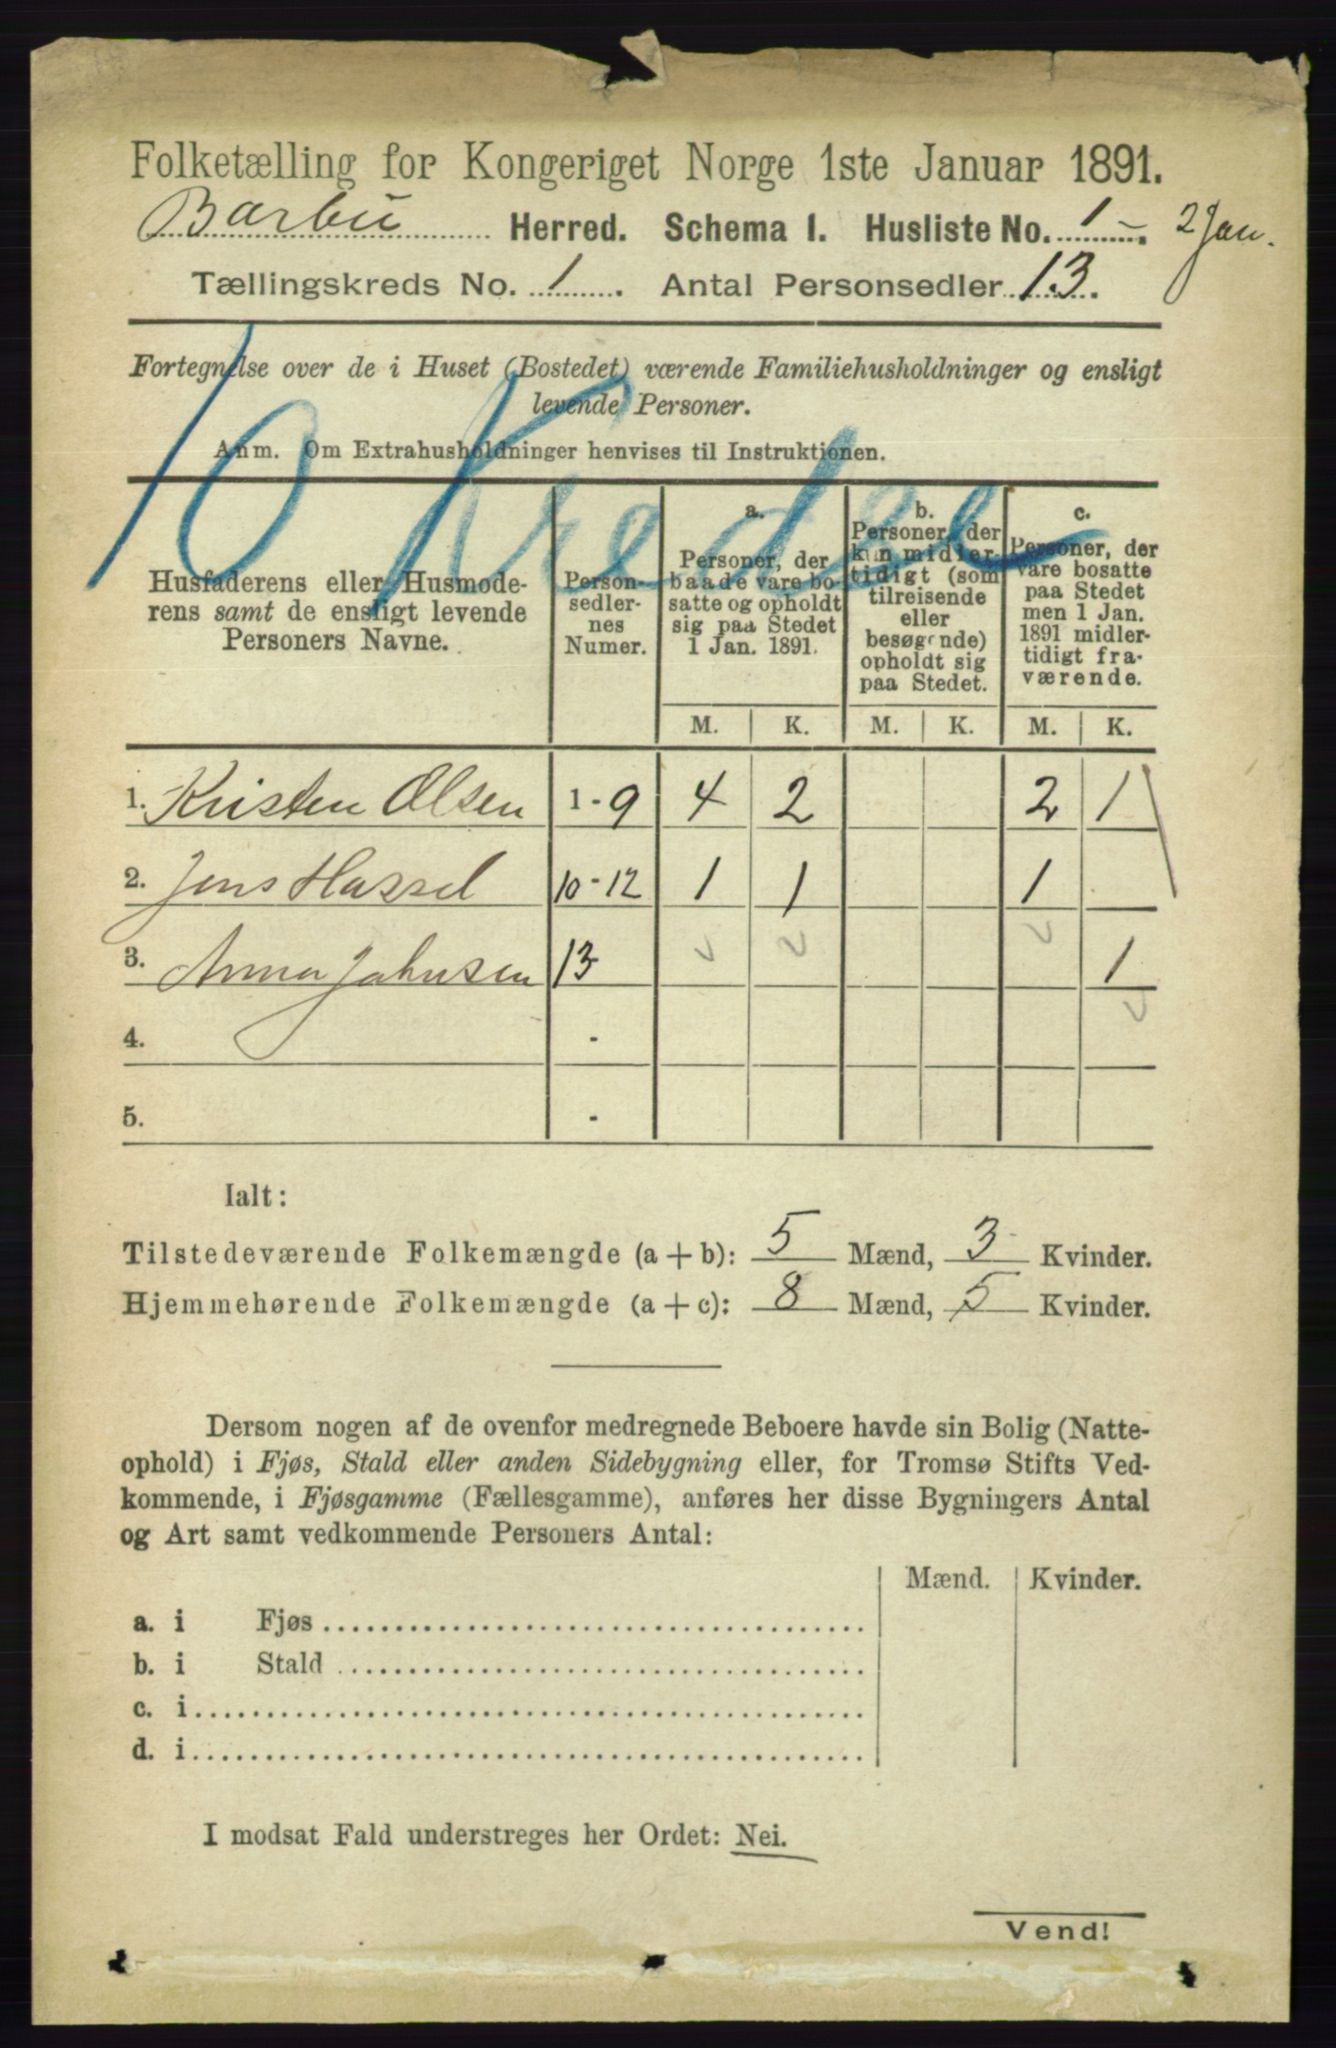 Folketælling for Kongeriget Norge 1ste Januar 1891.
Barbu Herred. Schema I. Husliste No. 1 2 Jan.
Tællingskreds No. 1. Antal Personsedler 13.
Fortegnelse over de i Huset (Bostedet) værende Familiehusholdninger og ensligt
levende Personer.
Anm. Om Extrahusholdninger henvises til Instruktionen.
10 Kreds
Husfaderens eller Husmode-
rens samt de ensligt levende
Personers Navne.
Person-
sedler-
nes
Numer.
a.
Personer, der
baade vare bo-
satte og opholdt
sig paa Stedet
1 Jan. 1891.
b.
Personer, der
kun midler-
tidigt (som
tilreisende
eller
besøgende)
opholdt sig
paa Stedet.
c.
Personer, der
vare bosatte
paa Stedet
men 1 Jan.
1891 midler-
tidigt fra-
værende.
M. K. M. K. M. K.
1. Kristen Olsen 1-9 4 2 2 1
2. Jens Hassel 10-12 1 1 1
3. Anna Jahnsen 13 1
4. -
5. -
Ialt:
Tilstedeværende Folkemængde (a + b): 5 Mænd, 3 Kvinder.
Hjemmehørende Folkemængde (a + c): 8 Mænd, 5 Kvinder.
Dersom nogen af de ovenfor medregnede Beboere havde sin Bolig (Natte-
ophold) i Fjøs, Stald eller anden Sidebygning eller, for Tromsø Stifts Ved-
kommende, i Fjøsgamme (Fællesgamme), anføres her disse Bygningers Antal
og Art samt vedkommende Personers Antal:
Mænd. Kvinder.
a. i Fjøs
b. i Stald
c. i
d. i
I modsat Fald understreges her Ordet: Nei.
Vend!